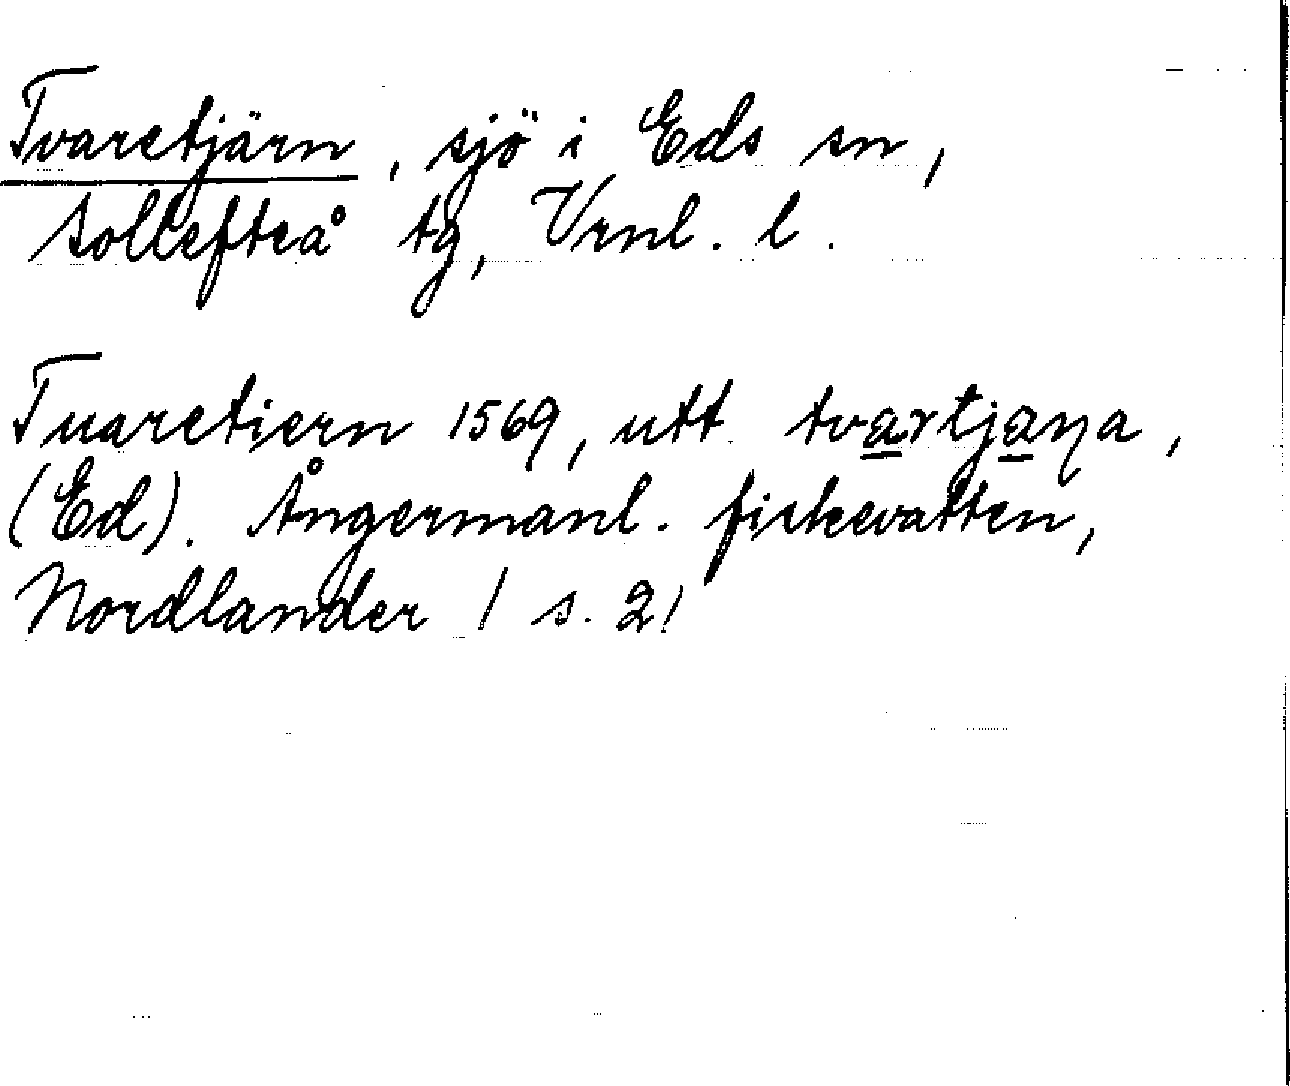 Tvaretjärn, sjö i Eds sn,
Sollefteå tg, Vrnl. l.
Tuaretiern 1569, utt. tvartjaŋa,
(Ed). Ångermanl. fiskevatten,
Nordlander 1 s. 21